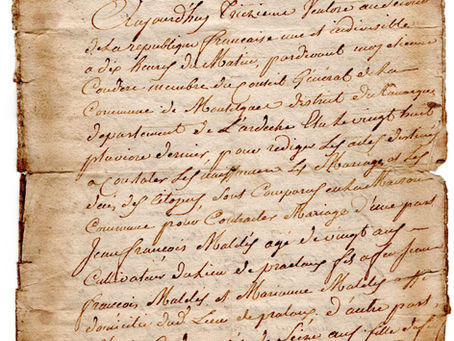 Aujourdhuy Treizieme Ventose an second
de la republique francaise une et indivisible
a dix heures du Matin, pardevant moy etienne
Coudere membre du conseil Général de la
Commune de Montelgue district du Tanargue
departement de L'ardeche Elu le vingt huit
pluviose dernier, pour rediger les actes destinés
a constater les naissances Les Mariages et les
deces des Citoyens, sont Comparus en la Maison
Commune pour Contracter Mariage d'une part
Jean francois Mateles agé de vingt ans
Cultivateur du lieu de pratoux fils a feu Jean
francois Mateles et Marianne Mateles
domiciliés dud. Lieu de pratoux, d'autre part
de Seize ans fille